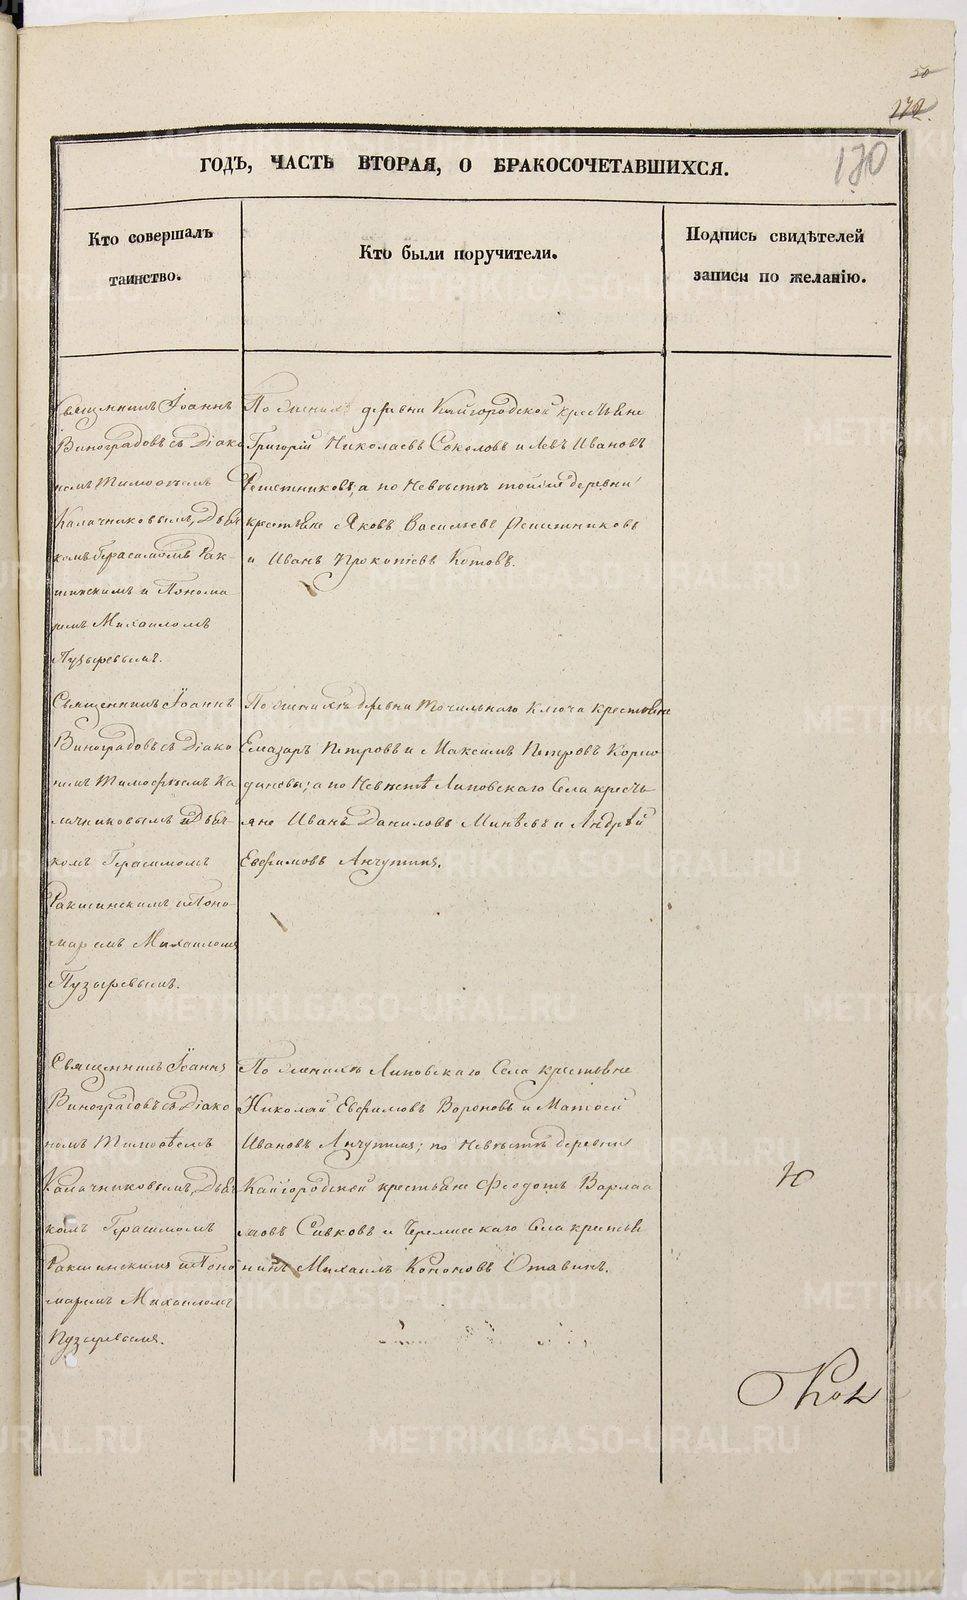 50
170
ГОДЪ, ЧАСТЬ ВТОРАЯ, О БРАКОСОЧЕТАВШИХСЯ.
Кто совершалъ
таинство.
Кто были поручители.
Подпись свидѣтелей
записи по желанію.
Священникъ Іоаннъ
Виноградовъ съ Діако
номъ Тимоѳеемъ
Калачниковымъ, Дьяч
комъ Герасимомъ Рак-
шинскимъ и Понома
ремъ Михаиломъ
Пузыревымъ.
По женихѣ деревни Кайгородской крестьяне
Григорій Николаевъ Соколовъ и Левъ Ивановъ
Решетниковъ, а по Невѣстѣ тойже деревни
крестьяне Яковъ Васильевъ Решетниковъ
и Иванъ Прокопіевъ Котовъ.
Священникъ Іоаннъ
Виноградовъ съ Діако
номъ Тимофеемъ Ка
лачниковымъ и Дьяч
комъ Герасимомъ
Ракшинскимъ и Поно
маремъ Михаиломъ
Пузыревымъ.
По женихѣ деревни Точильнаго Ключа крестьяне
Елизаръ Петровъ и Максимъ Петровъ Корко
диновы; а по Невѣстѣ Липовскаго Села кресть
яне Иванъ Даниловъ Минѣевъ и Андрей
Евфимовъ Анчутинъ.
Священникъ Іоаннъ
Виноградовъ съ Діако
номъ Тимоѳеемъ
Калачниковымъ, Дьяч
комъ Герасимомъ
Ракшинскимъ и Поно
маремъ Михаиломъ
Пузыревымъ.
По женихѣ Липовскаго Села крестьяне
Николай Евфимовъ Вороновъ и Матвей
Ивановъ Анчутинъ; по Невѣстѣ деревни
Кайгородской крестьяне Феодотъ Варлаа
мовъ Сивковъ и Черемисскаго Села крестья
нинъ Михаилъ Кононовъ Отавинъ.
METRIKI.GASO-URAL.RU